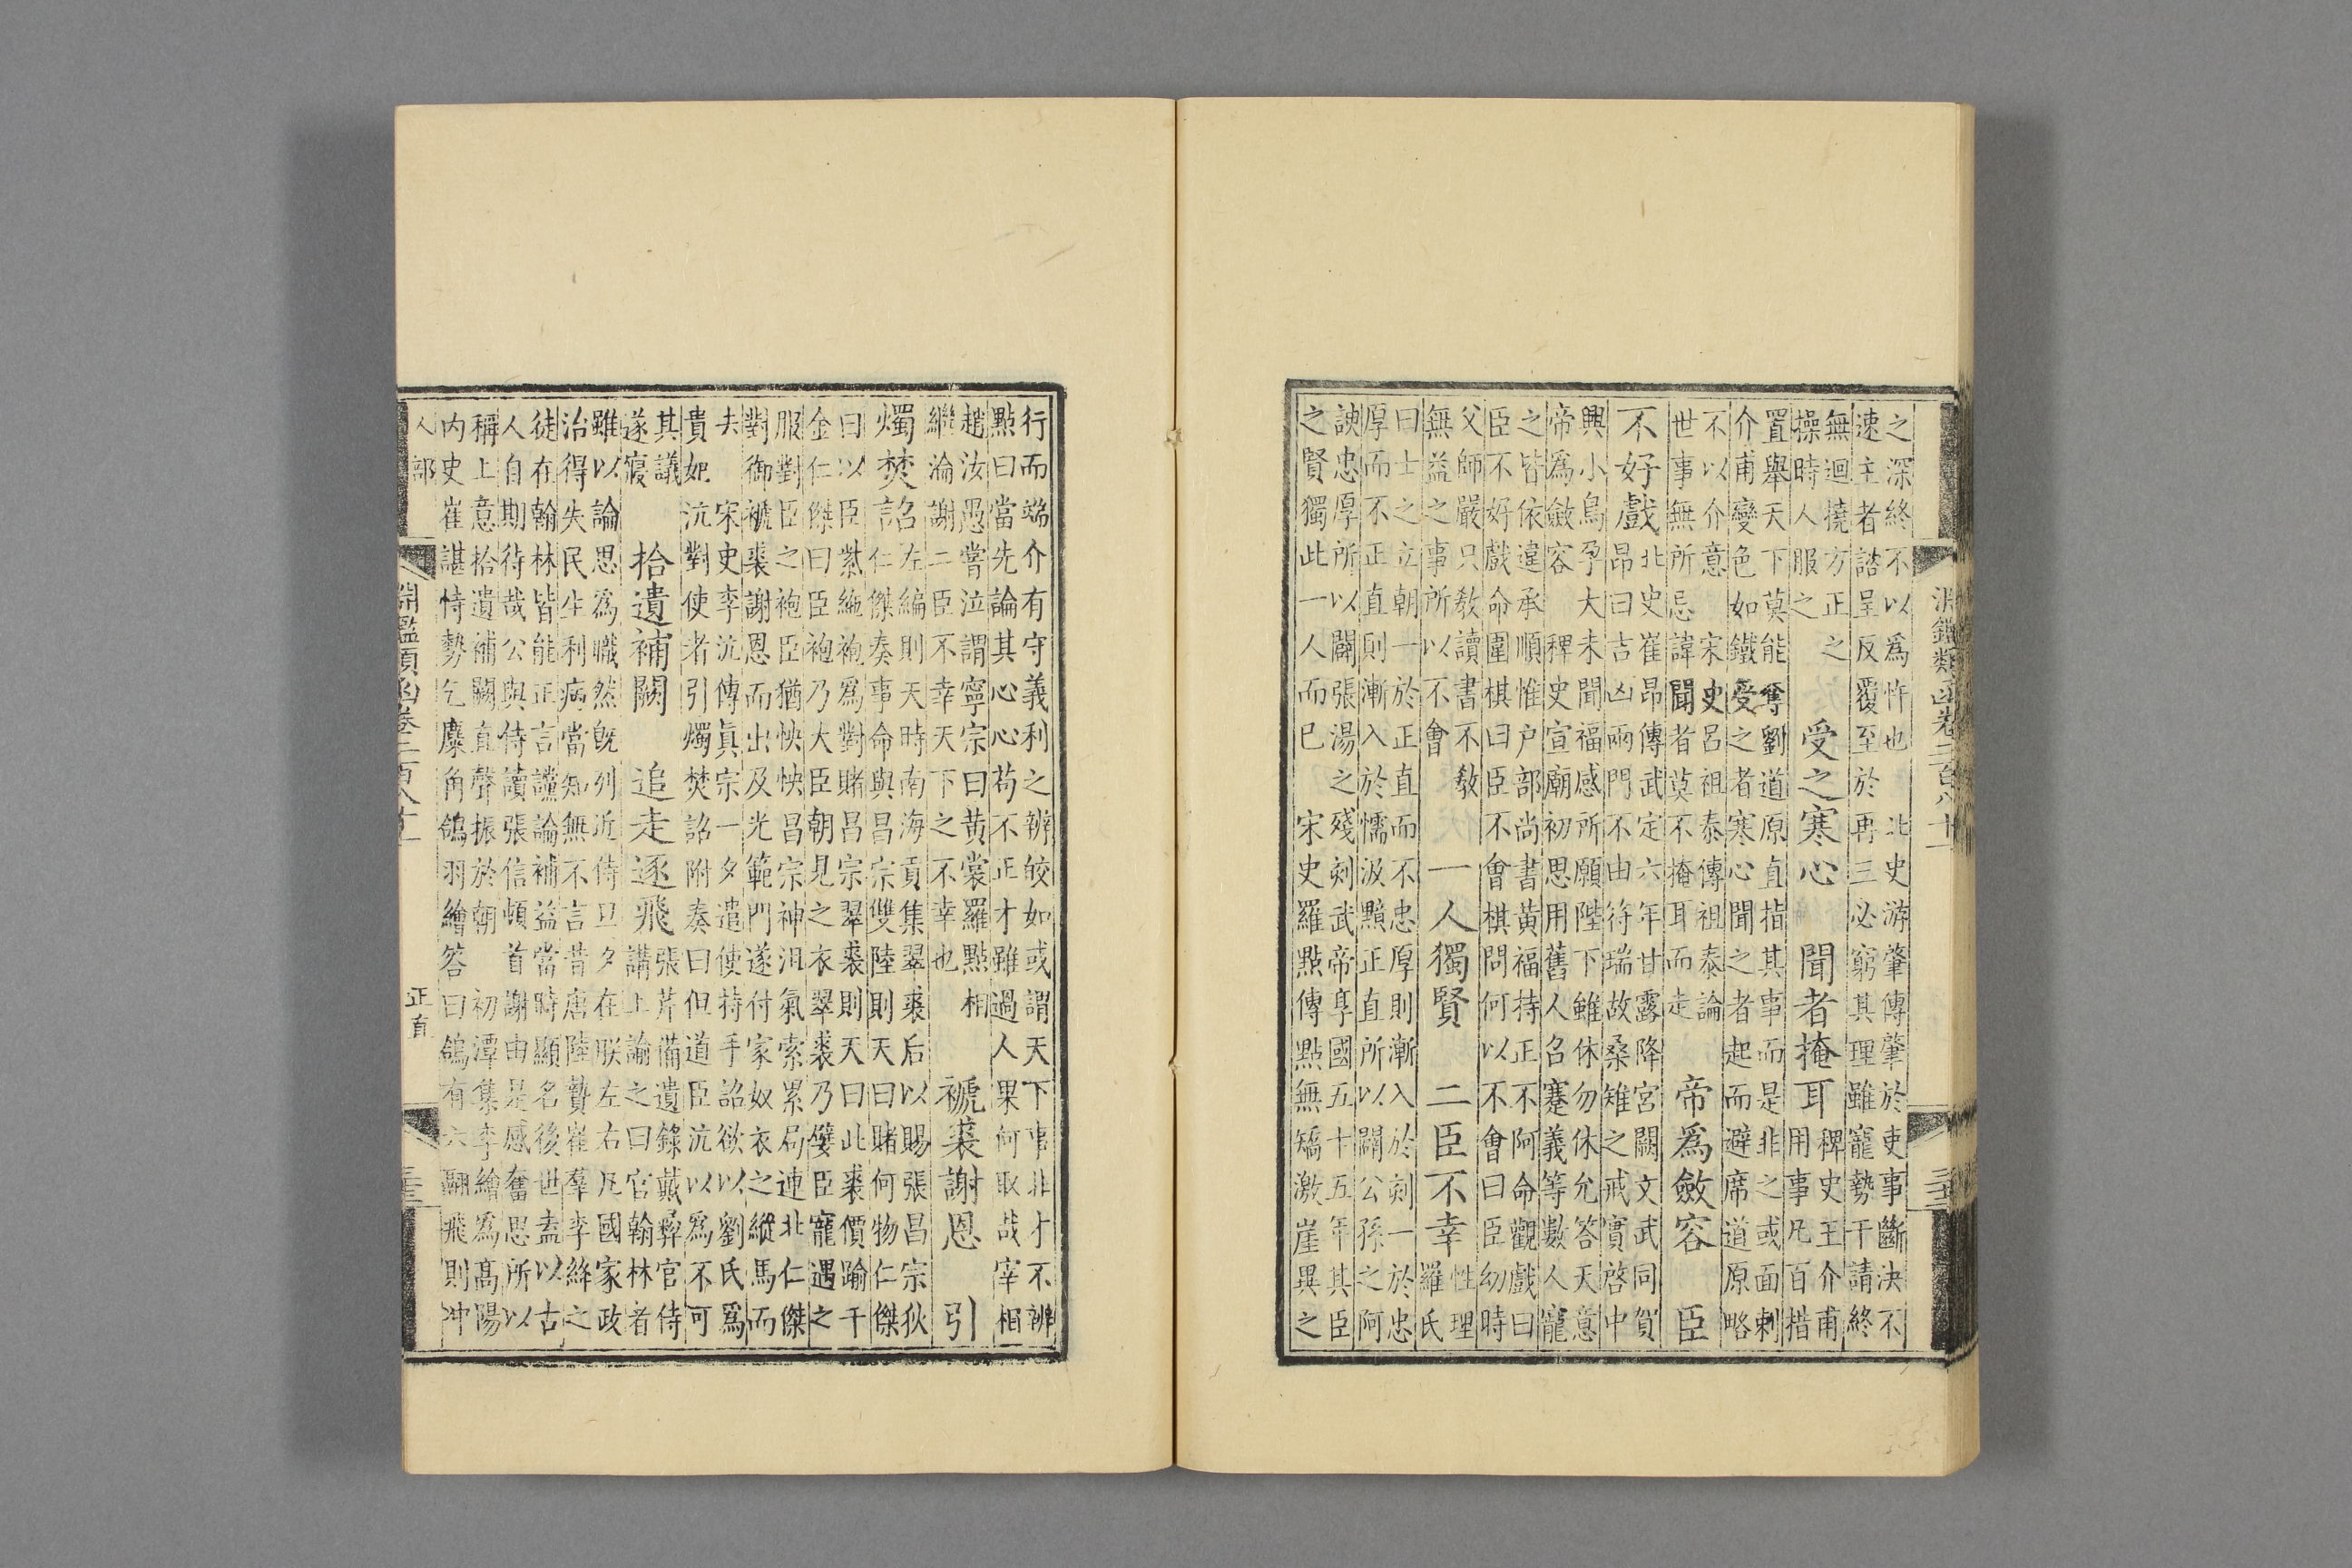 淵鑑類函卷二百八十一
之深終不以爲忤也 北史游肇傳肇於吏事斷決不
速主者諮呈反覆至於再三必窮其理雖寵勢干請終
無迴撓方正之
操時人服之
受之寒心 聞者掩耳
稗史王介甫
用事凡百措
置舉天下莫能奪劉道原直指其事而是非之或面刺
介甫變色如鐵受之者寒心聞之者起而避席道原略
不以介意 宋史呂祖泰傳祖泰論
世事無所忌諱聞者莫不掩耳而走
帝爲斂容 臣
不好戲
北史崔昂傳武定六年甘露降宮闕文武同賀
昂曰吉凶兩門不由符瑞故桑雉之戒實啓中
興小鳥孕大未聞福感所願陛下雖休勿休允答天意
帝爲斂容 稗史宣廟初思用舊人召蹇義等數人寵
之皆依違承順惟户部尚書黃福持正不阿命觀戲曰
臣不好戲命圍棋曰臣不會棋問何以不會曰臣幼時
父師嚴只教讀書不教
無益之事所以不會
一人獨賢 二臣不幸
性理
羅氏
曰士之立朝一於正直而不忠厚則漸入於刻一於忠
厚而不正直則漸入於懦汲黯正直所以闢公孫之阿
諛忠厚所以闢張湯之殘刻武帝享國五十五年其臣
之賢獨此一人而已 宋史羅點傳點無矯激崖異之
行而端介有守義利之辨皎如或謂天下事非才不辨
點曰當先論其心心苟不正才雖過人果何取哉宰相
趙汝愚嘗泣謂寧宗曰黄裳羅點相
繼淪謝二臣不幸天下之不幸也
褫裘謝恩 引
燭焚詔
左編則天時南海貢集翠裘后以賜張昌宗狄
仁傑奏事命與昌宗雙陸則天曰賭何物仁傑
曰以臣紫絁袍爲對賭昌宗翠裘則天曰此裘價踰千
金仁傑曰臣袍乃大臣朝見之衣翠裘乃嬖臣寵遇之
服對臣之袍臣猶怏怏昌宗神沮氣索累局連北仁傑
對御褫裘謝恩而出及光範門遂付家奴衣之縱馬而
去 宋史李沆傳眞宗一夕遣使持手詔欲以劉氏爲
貴妃沆對使者引燭焚詔附奏曰但道臣沆以爲不可
其議
遂寢
拾遺補闕 追走逐飛
張芹備遺錄戴彝官侍
講上諭之曰官翰林者
雖以論思爲職然旣列近侍旦夕在朕左右凡國家政
治得失民生利病當知無不言昔唐陸贄崔羣李絳之
徒在翰林皆能正言讜論補益當時顯名後世盖以古
人自期待哉公與侍讀張信頓首謝由是感奮思所以
稱上意拾遺補闕直聲振於朝 初潭集李繪爲高陽
内史崔諶恃勢乞麋角鴿羽繪答曰鴿有六翮飛則冲
人部
淵鑑類函卷二百八十一
正直